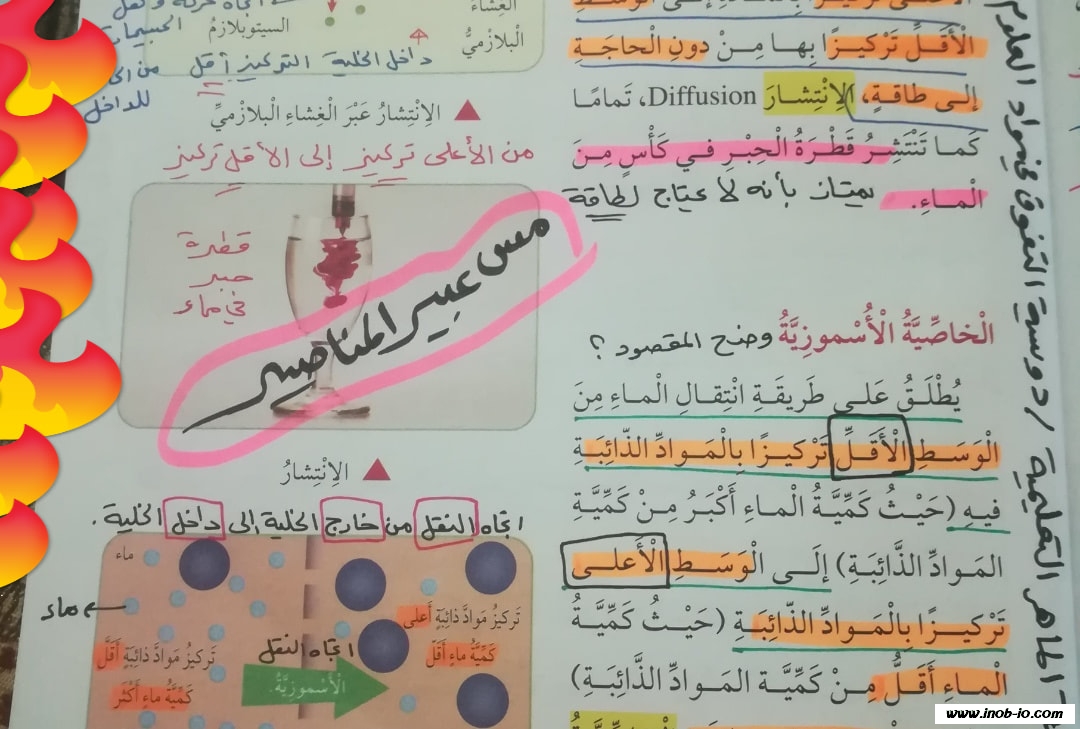 الْأَقَلِّ تَرْكِيزًا بِها مِنْ دونِ الْحاجَةِ
إِلى طاقةٍ، الِانْتِشارَ Diffusion، تَمامًا
كَما تَنْتَشِرُ قَطْرَةُ الْحِبْرِ في كَأْسٍ مِنَ
الْماءِ. يمتاز بأنه لا يحتاج لطاقة
الْخاصِّيَّةُ الْأُسْموزِيَّةُ وضح المقصود ؟
يُطْلَقُ عَلى طَريقَةِ انْتِقالِ الْماءِ مِنَ
الْوَسَطِ الْأَقَلِّ تَرْكيزًا بِالْمَوادِّ الذّائِبَةِ
فيهِ (حَيْثُ كَمِّيَّةُ الْماءِ أَكْبَرُ مِنْ كَمِّيَّةِ
المَوادِّ الذَّائِبَةِ) إِلَى الْوَسَطِ الْأَعْلى
تَرْكيزًا بِالْمَوادِّ الذّائِبَةِ (حَيْثُ كَمِّيَّةُ
الْماءِ أَقَلُّ مِنْ كَمِّيَّة المَوادِّ الذَّائِبَةِ)
الْغِشاءُ
الْبْلازْمِيُّ
السيتوبلازمُ
داخل الخلية التركيز أقل
للداخل
الِانْتِشارُ عَبْرَ الْغِشاءِ الْبلازْمِيِّ
من الأعلى تركيز إلى الأقل تركيز
قطرة
حبر
في ماء
مس عبير المناصير
الِانْتِشارُ
اتجاه النقل من خارج الخلية الى داخل الخلية.
ماء
ماء
تَركيزُ مَوادَّ ذائِبَةٍ أَعلى
كَمِّيَّةُ ماءٍ أَقَلُّ
تَركيزُ مَوادَّ ذائِبَةٍ أَقَلُّ
كَمِّيَّةُ ماءٍ أَكْثَرُ
اتجاه النقل
الْأُسْموزِيَّةُ.
الماهر التعليمية / دوسية التفوق في مواد العلوم
www.inob-io.com